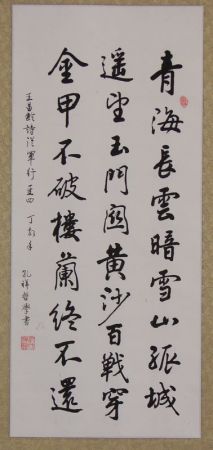 青海長雲暗雪山孤城
遙望玉門關黃沙百戰穿
金甲不破樓蘭終不還
王昌齡詩從軍行 四 丁亥年
孔祥 書